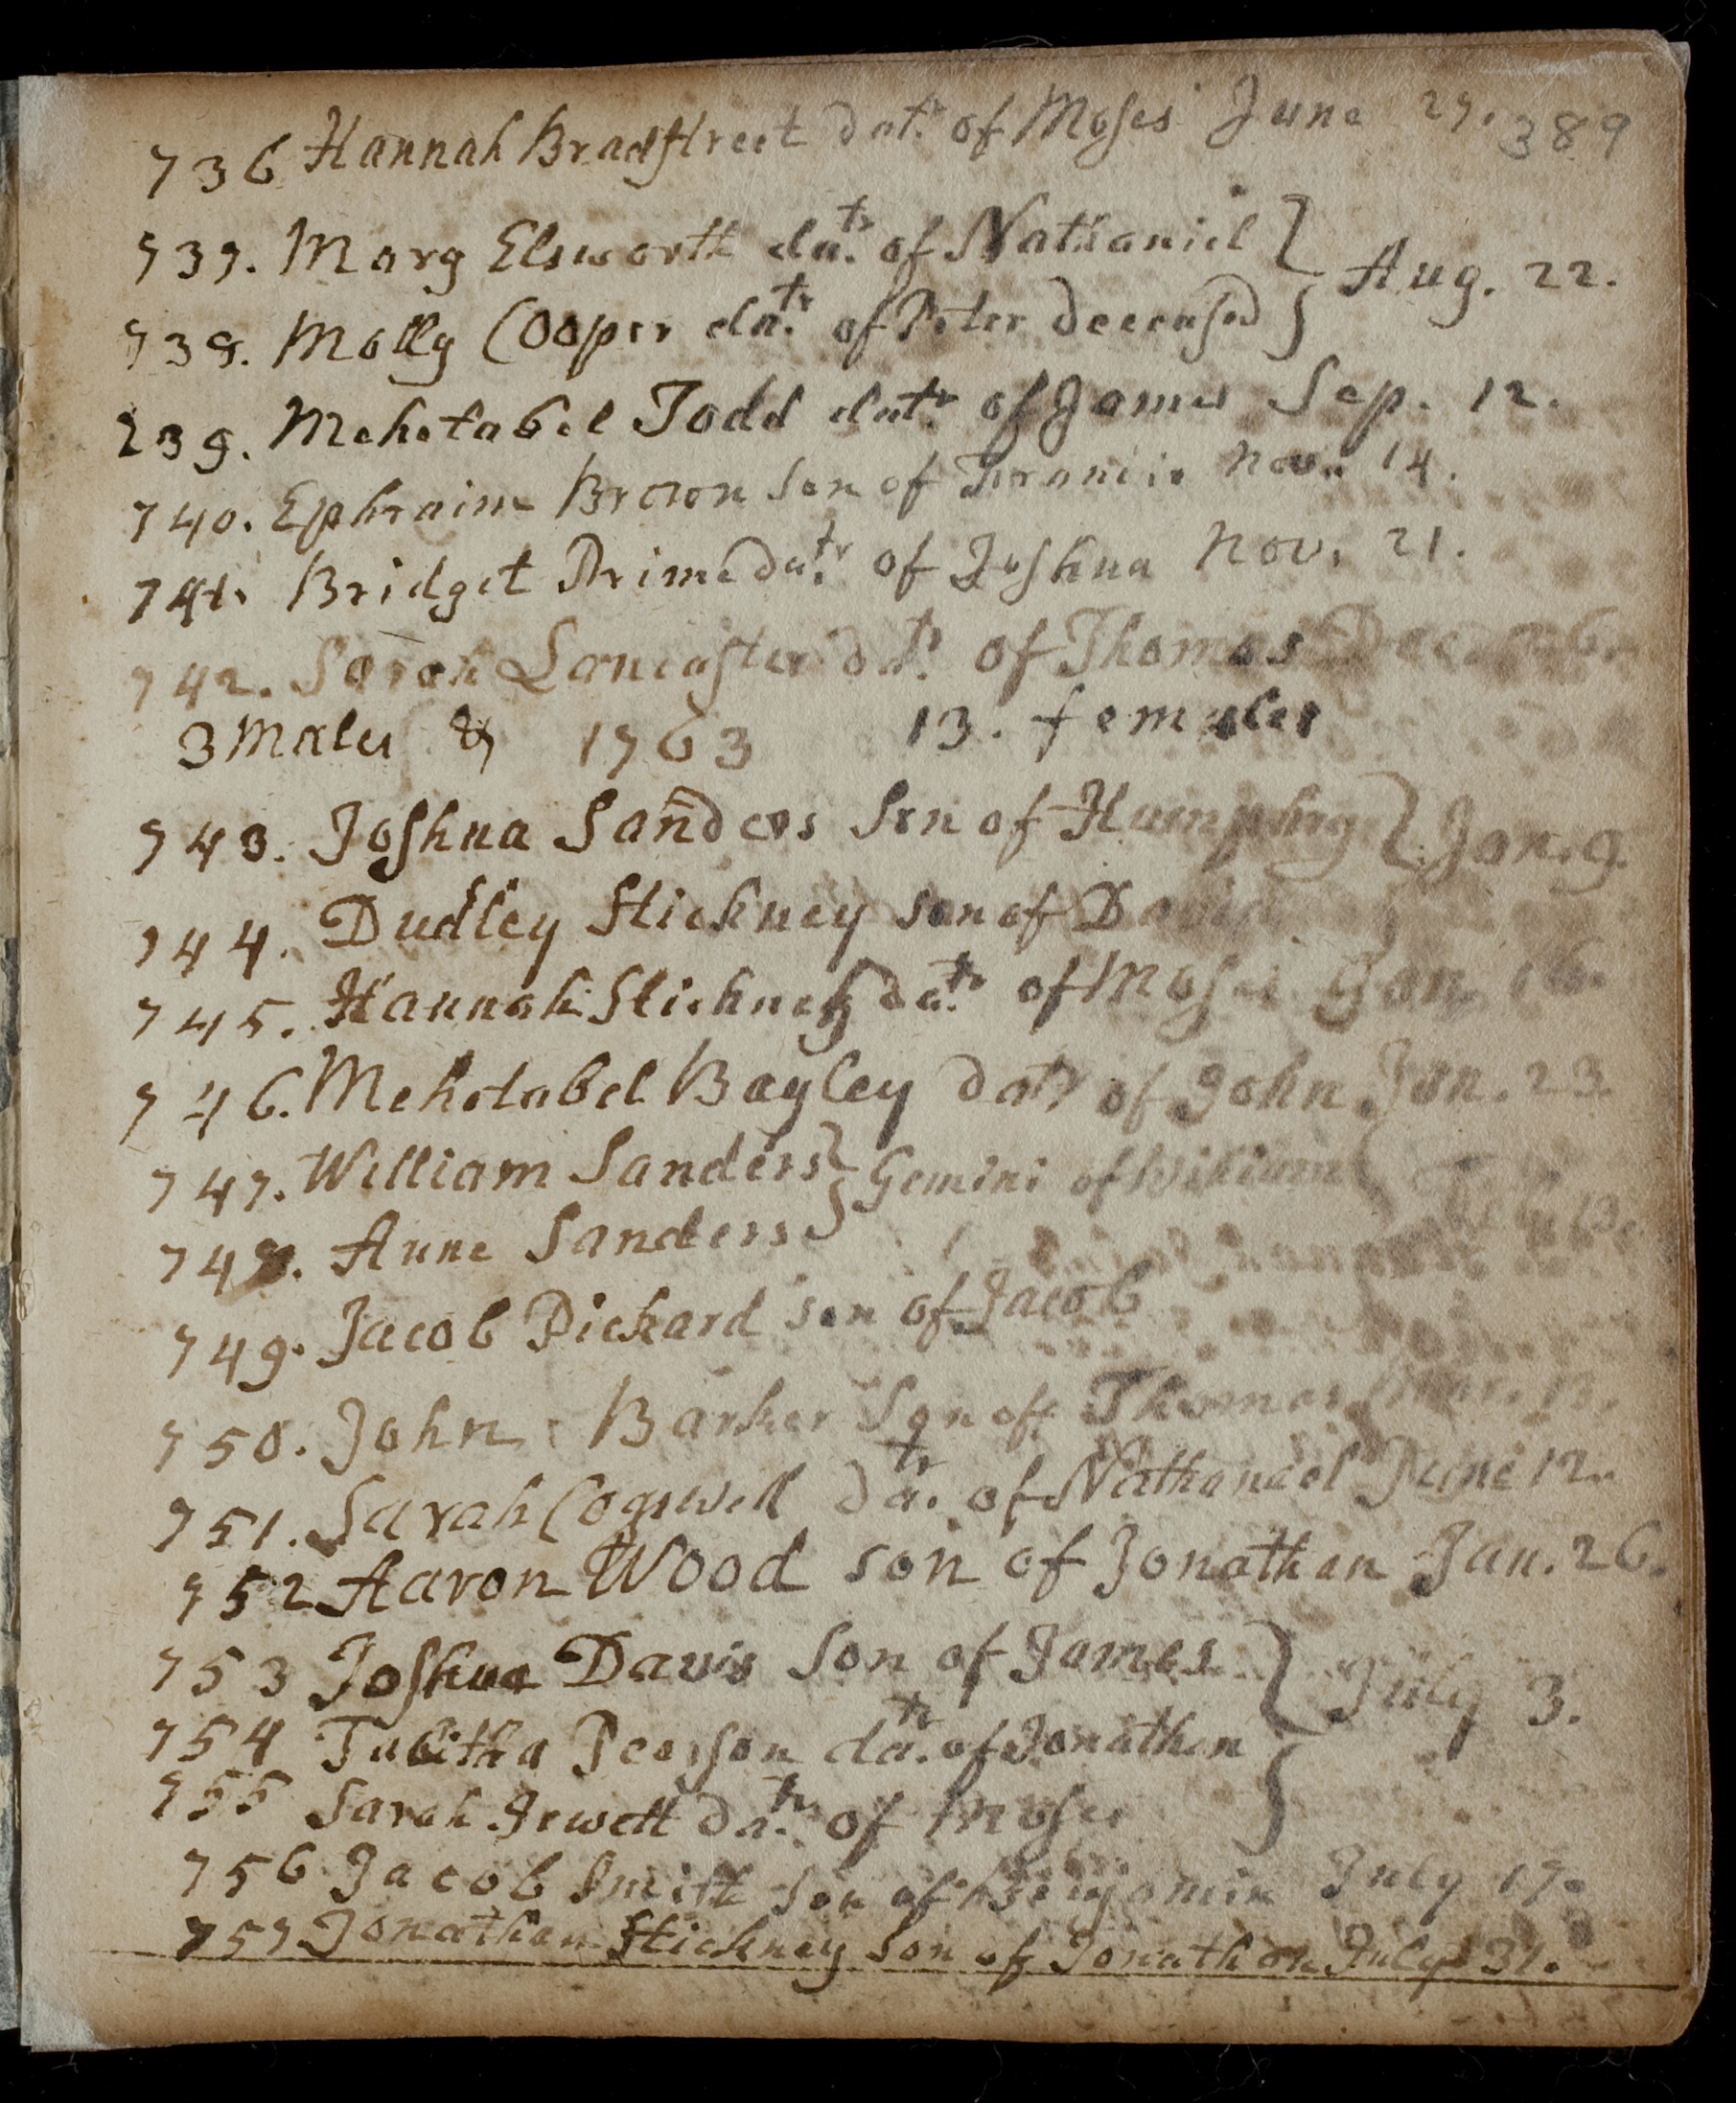 736 Hannah Bradstreet datr. of Moses June 27. 389
737. Mary Elsworth datr. of Nathaniel } Aug. 22.
738. Molly Cooper datr. of Peter deceased }
739. Mehetabel Todd datr. of James Sep. 12.
740. Ephraim Brown son of Francis Nov. 14.
741. Bridget Prime datr. of Joshua Nov. 21.
742. Sarah Lancaster datr. of Thomas Dec. 26.
3 Males & 1763 13. females
743. Joshua Sanders Son of Humphry } Jan. 9.
744. Dudley Stickney son of David
745. Hannah Stickney datr. of Moses Jan. 16.
746. Mehetabel Bayley datr of John Jan. 23.
747. William Sanders } Gemini of William
748. Anne Sanders } 13.
749. Jacob Pickard son of Jacob
750. John Barker Son of Thomas
751. Sarah Cogswell datr. of Nathanael June 12.
752 Aaron Wood son of Jonathan Jan. 26.
753 Joshua Davis Son of James } July 3.
754 Tabitha Pearson datr. of Jonathan
755 Sarah Jewett datr. of Moses }
756 Jacob Smith Son of Benjamin July 17.
757 Jonathan Stickney Son of Jonathan July 31.